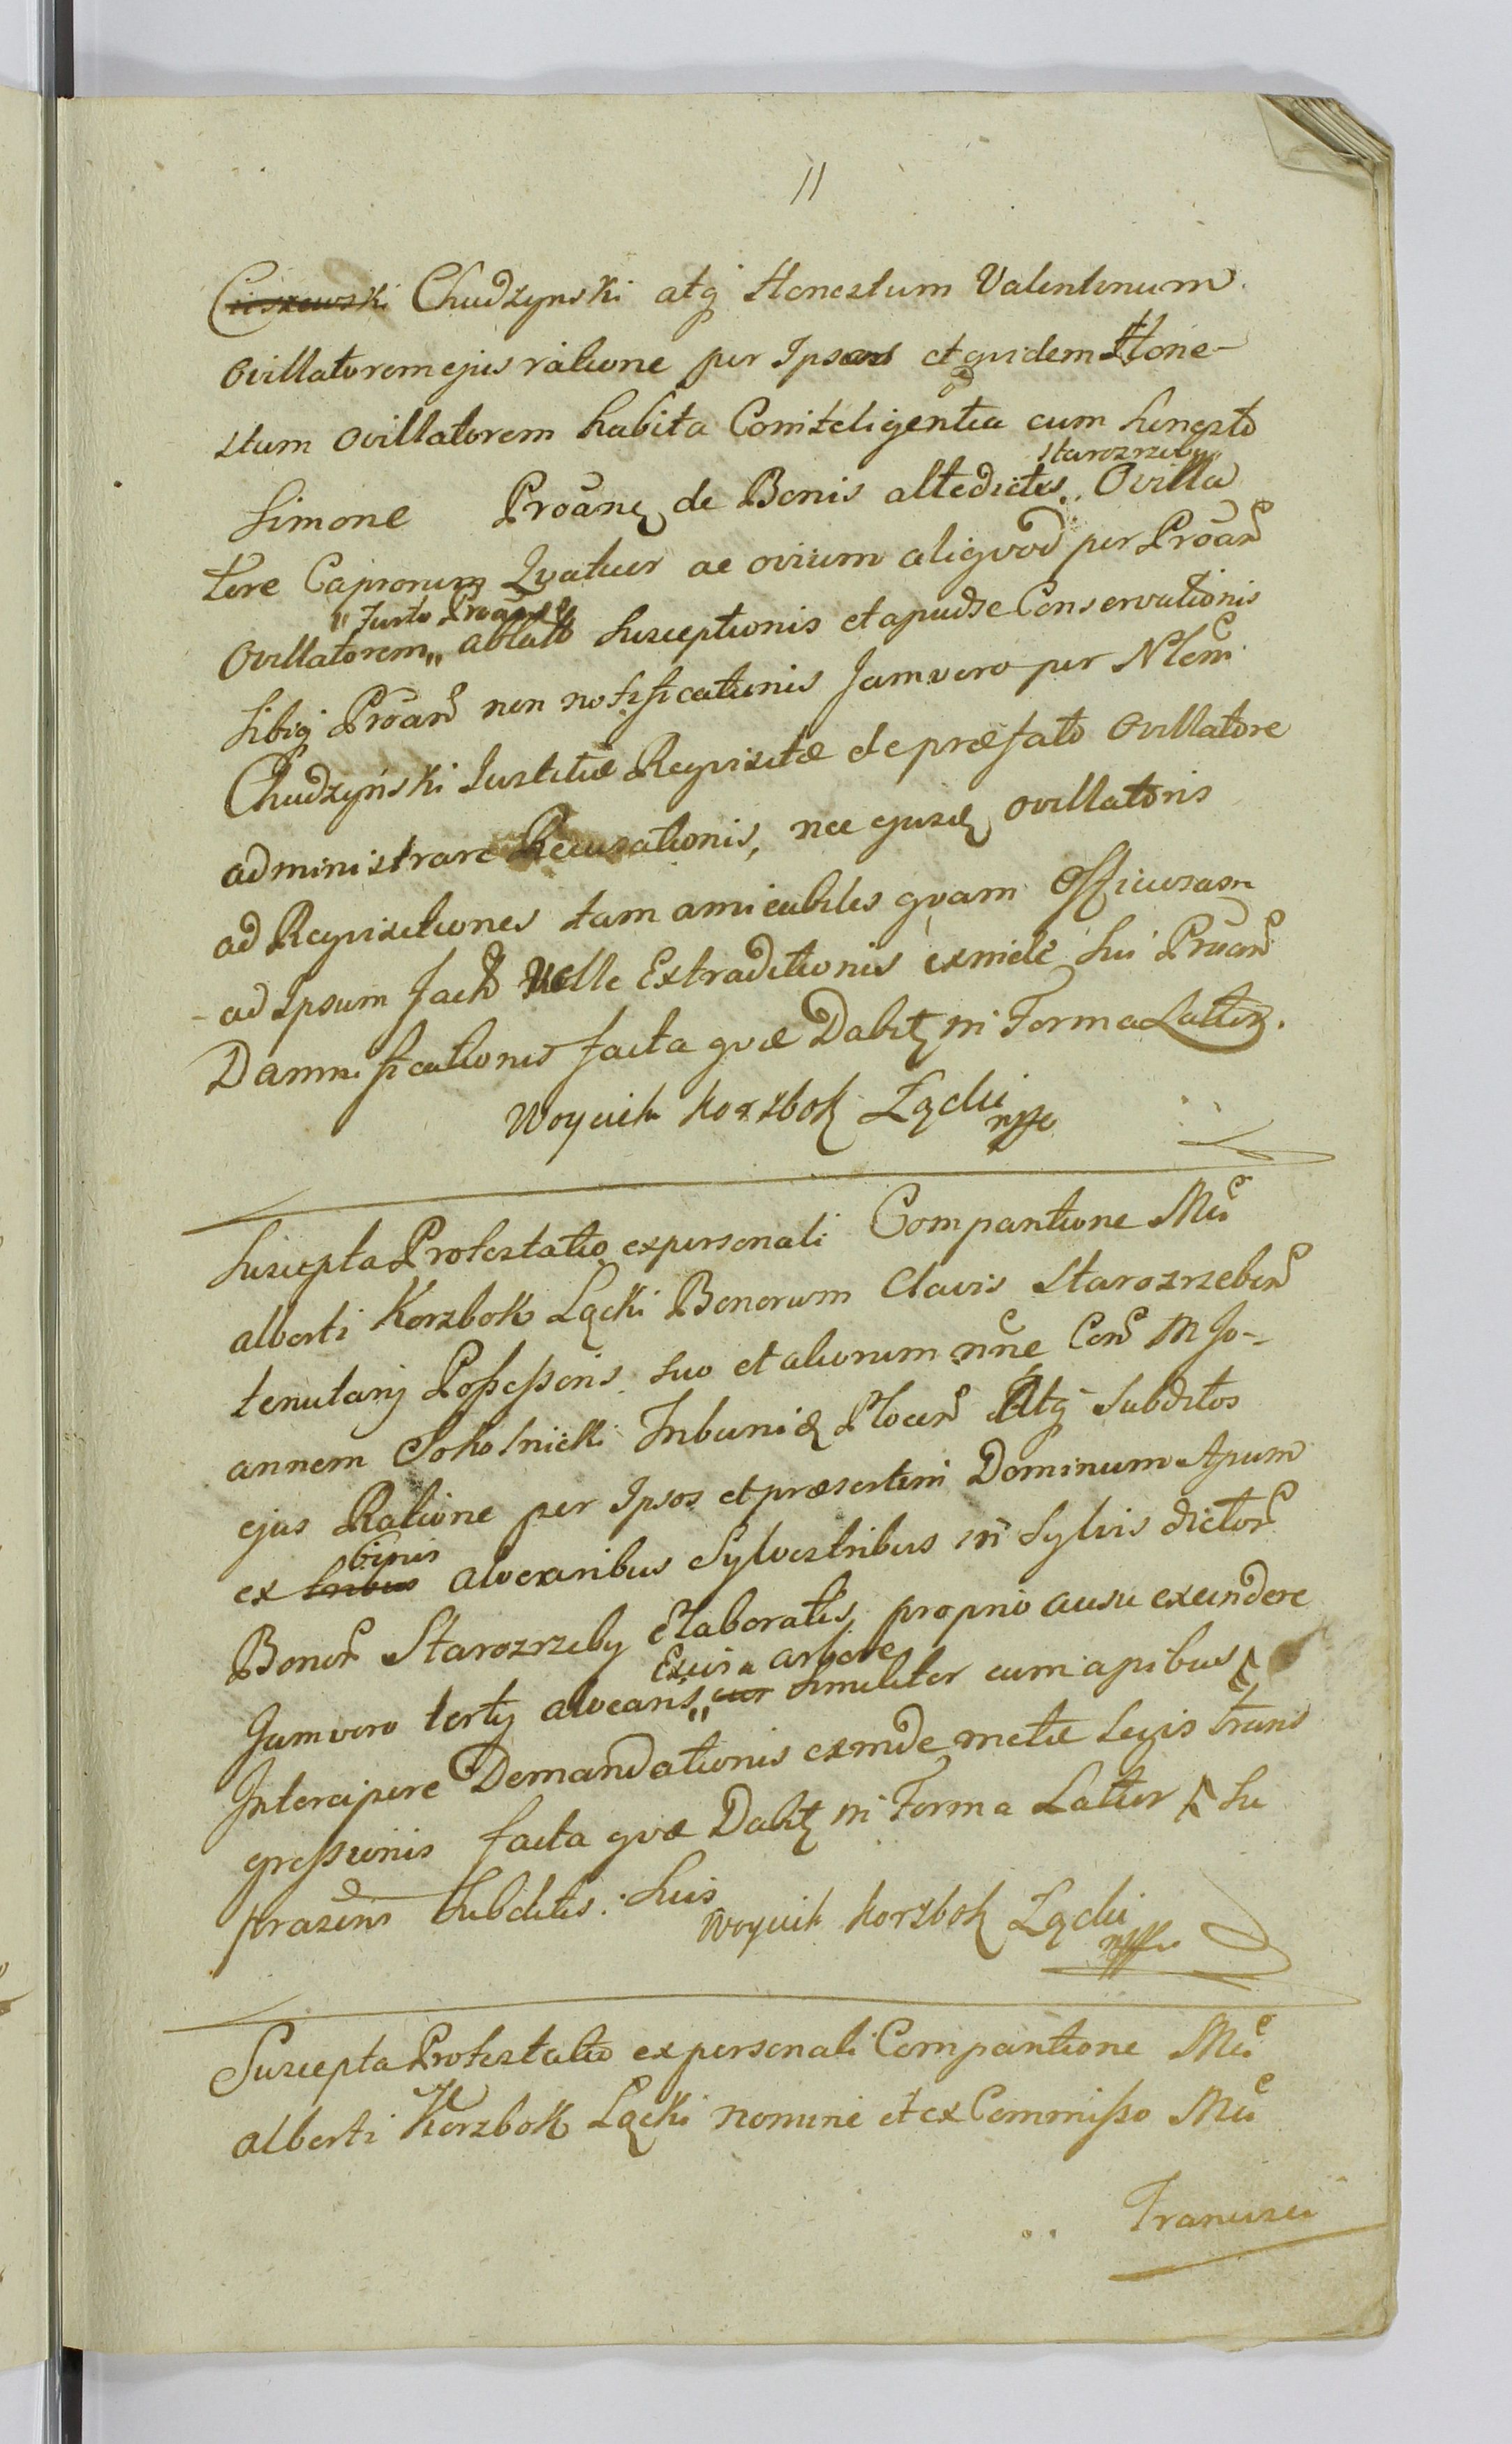 11
Ciiszewski Chudzynski atq Honestum Valentinum
Ovillatorem ejus ratione per Ipsos et quidem Hone-
stum Ovillatorem habita Coniteligentia cum honesto
Starozrzeby
Simone Proãne de Bonis altedictis Ovilla
tore Caprorum Quatuor ac ovium aliqvod per Proãn
furto
Ovillatorem ablat Susceptionis et apud se Conservationis
Sibiq Proãn non notificationis Jam vero per Nlem
Chudzyński Justitiæ Reqvisitæ de præfato Ovillatore
administrare Recusationis, nec ejusdẽ ovillatoris
ad Reqvisitiones tam amicabiles qvam Officiosam
ad Ipsum fact Nolle Extraditionis exinde Sui Proãn
Damnificationis facta qvæ Dabit in Forma Latior.
Woyciech Korzbok Łącki
mpp
Suscepta Protestatio ex personali Comparitione Mci
alberti Korzbok Łącki Bonorum Clavis Starozrzeben
tenutarij Possessoris suo et aliorum nñe Con M Jo-
annem Sokolnicki Tribunidẽ Plocen Atq Subditos
ejus Ratione per Ipsos et præsertim Dominum Apum
binis
ex tribus alvearibus Sylvestribus in Sylvis dictor
Bonor Starozrzeby Elaboratis proprio ausu exendere
Exciso arbore
Jam vero tertij alvearis similiter cum apibus
Intercipere Demandationis exinde metæ Legis trans
gressionis facta qvæ Dabit in Forma Latior Su
præsens Subditis Suis
Woyciech Korzbok Łącki
mpp
Suscepta Protestatio ex personali Comparitione Mci
alberti Korzbok Łącki nomine et ex Commisso Mci
Francisci